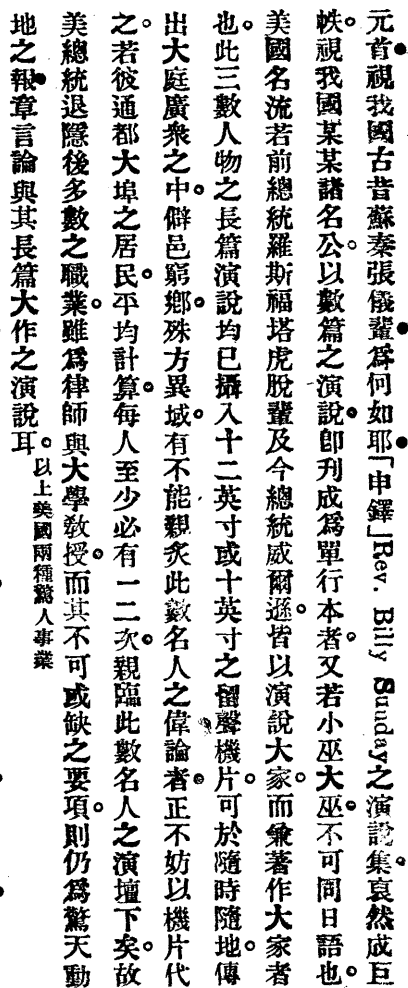 元首視我國古昔蘇秦張儀輩爲何如耶「申鐸」Rev. Billy Sunday之演說集裒然成巨
帙。視我國某某諸名公。以數篇之演說。即刋成爲單行本者。又若小巫大巫。不可同日語也。
美國名流若前總統羅斯福塔虎脫輩及今總統威爾遜。皆以演說大家。而兼著作大家者
也。此三數人物之長篇演說均已攝入十二英寸或十英寸之留聲機片。可於隨時隨地。傳
出大庭廣衆之中。僻邑窮鄉。殊方異域。有不能親炙此數名人之偉論者。正不妨以機片代
之。若彼通都大埠之居民。平均計算。每人至少必有一二次。親臨此數名人之演壇下矣。故
美總統退隱後多數之職業。雖爲律師與大學敎授。而其不可或缺之要項。則仍爲驚天動
地之報章言論與其長篇大作之演說耳。以上美國兩種驚人事業